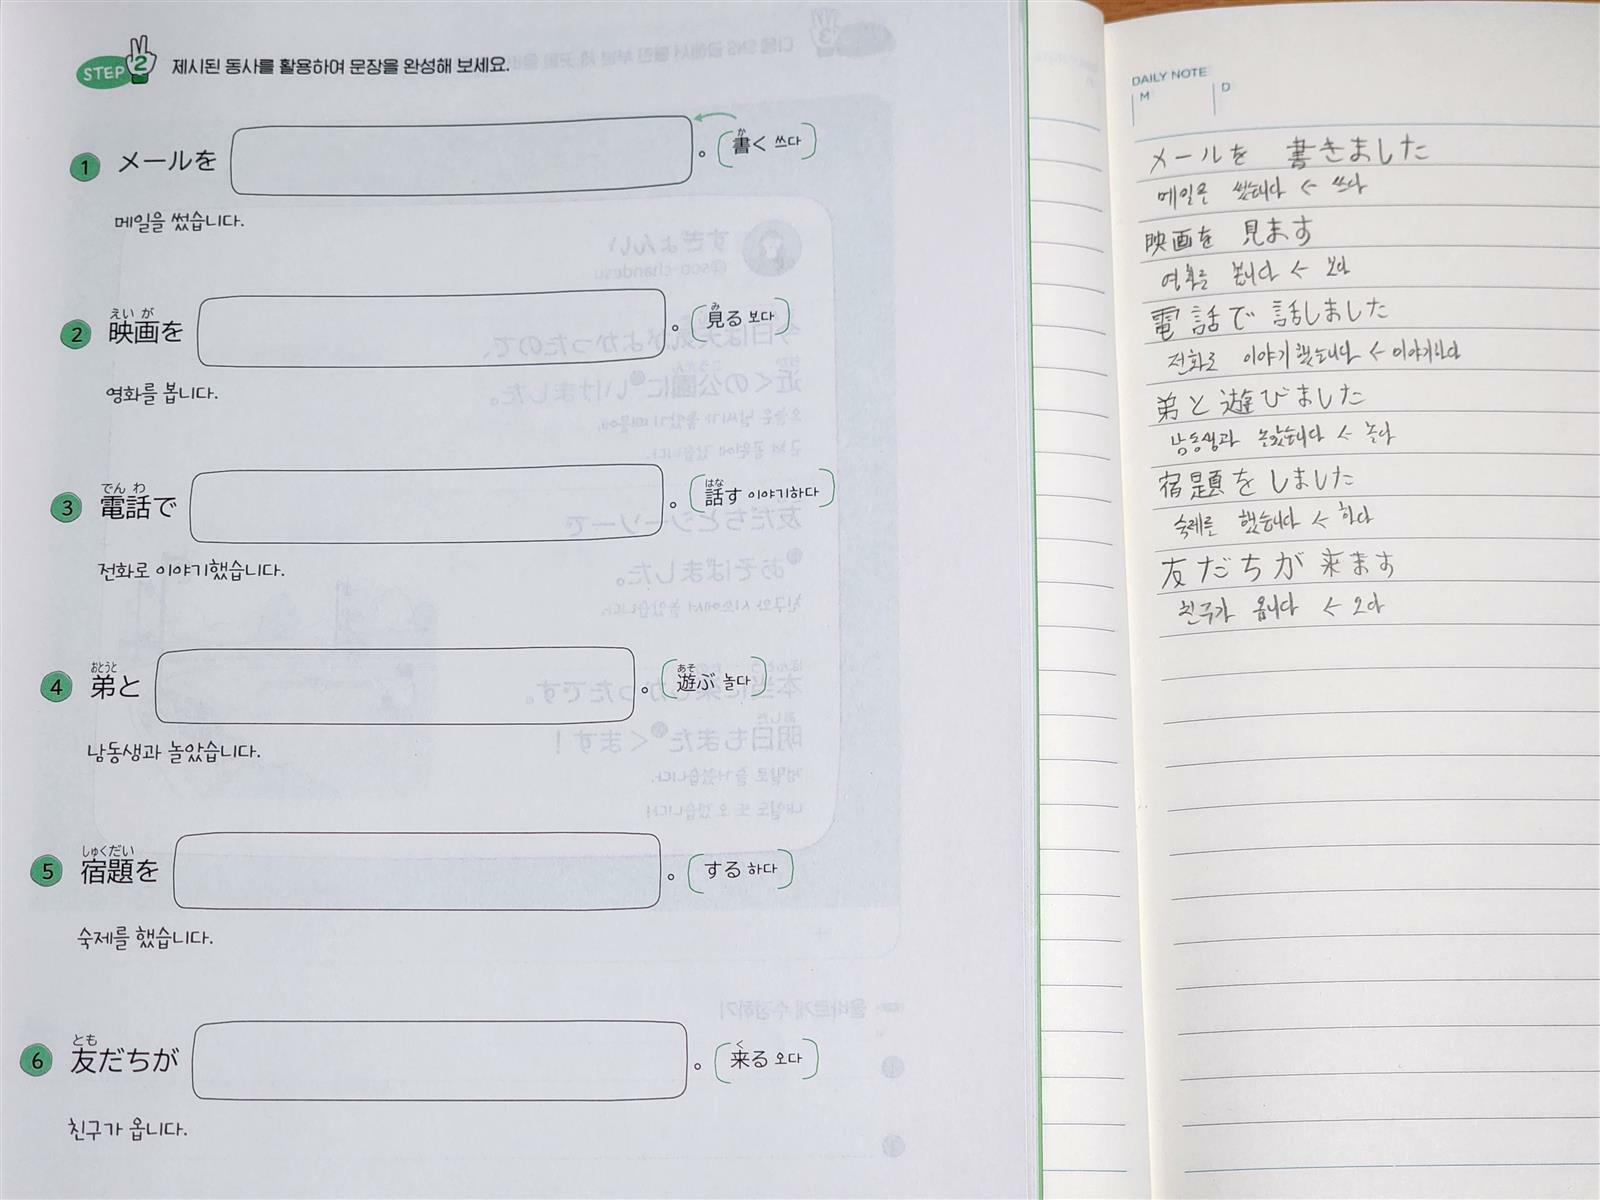 STEP 2 제시된 동사를 활용하여 문장을 완성해 보세요.
1 メールを 。 (書く 쓰다)
か
메일을 썼습니다.
えい が
み
2 映画を 。 (見る 보다)
영화를 봅니다.
でん わ
はな
3 電話で 。 (話す 이야기하다)
전화로 이야기했습니다.
おとうと
あそ
4 弟と 。 (遊ぶ 놀다)
남동생과 놀았습니다.
しゅくだい
5 宿題を 。 (する 하다)
숙제를 했습니다.
とも
く
6 友だちが 。 (来る 오다)
친구가 옵니다.
DAILY NOTE
M D
メールを 書きました
메일을 썼습니다 ← 쓰다
映画を 見ます
영화를 봅니다 ← 보다
電話で 話しました
전화로 이야기했습니다 ← 이야기하다
弟と 遊びました
남동생과 놀았습니다 ← 놀다
宿題をしました
숙제를 했습니다 ← 하다
友だちが 来ます
친구가 옵니다 ← 오다